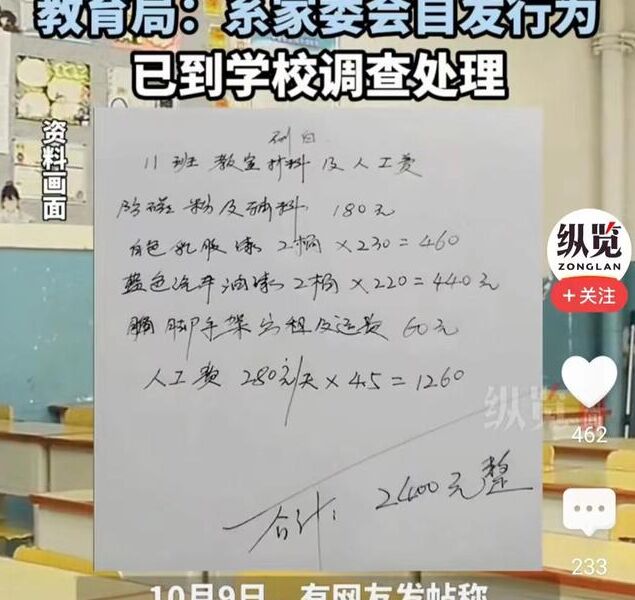 教育局：系家委会自发行为
已到学校调查处理
资料画面
11班 教室材料及人工费
180元
白色乳胶漆 2桶 ×230=460
蓝色汽车油漆 2桶 ×220=440元
脚手架 租及运费 60元
人工费 280元/天 ×4.5=1260
合计： 2400元整
纵览
ZONGLAN
+关注
纵览
462
233
10月9日，有网友发帖称